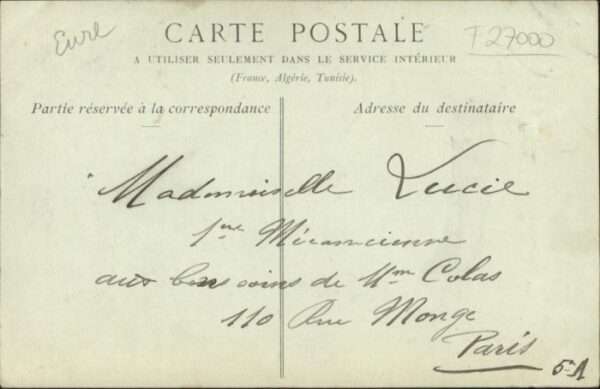 Eure
F27000
CARTE POSTALE
A UTILISER SEULEMENT DANS LE SERVICE INTÉRIEUR
(France, Algérie, Tunisie).
Partie réservée à la correspondance
Adresse du destinataire
Mademoiselle Lucie
1ère Mécanicienne
aux bons soins de Mme Colas
110 Rue Monge
Paris
5e A